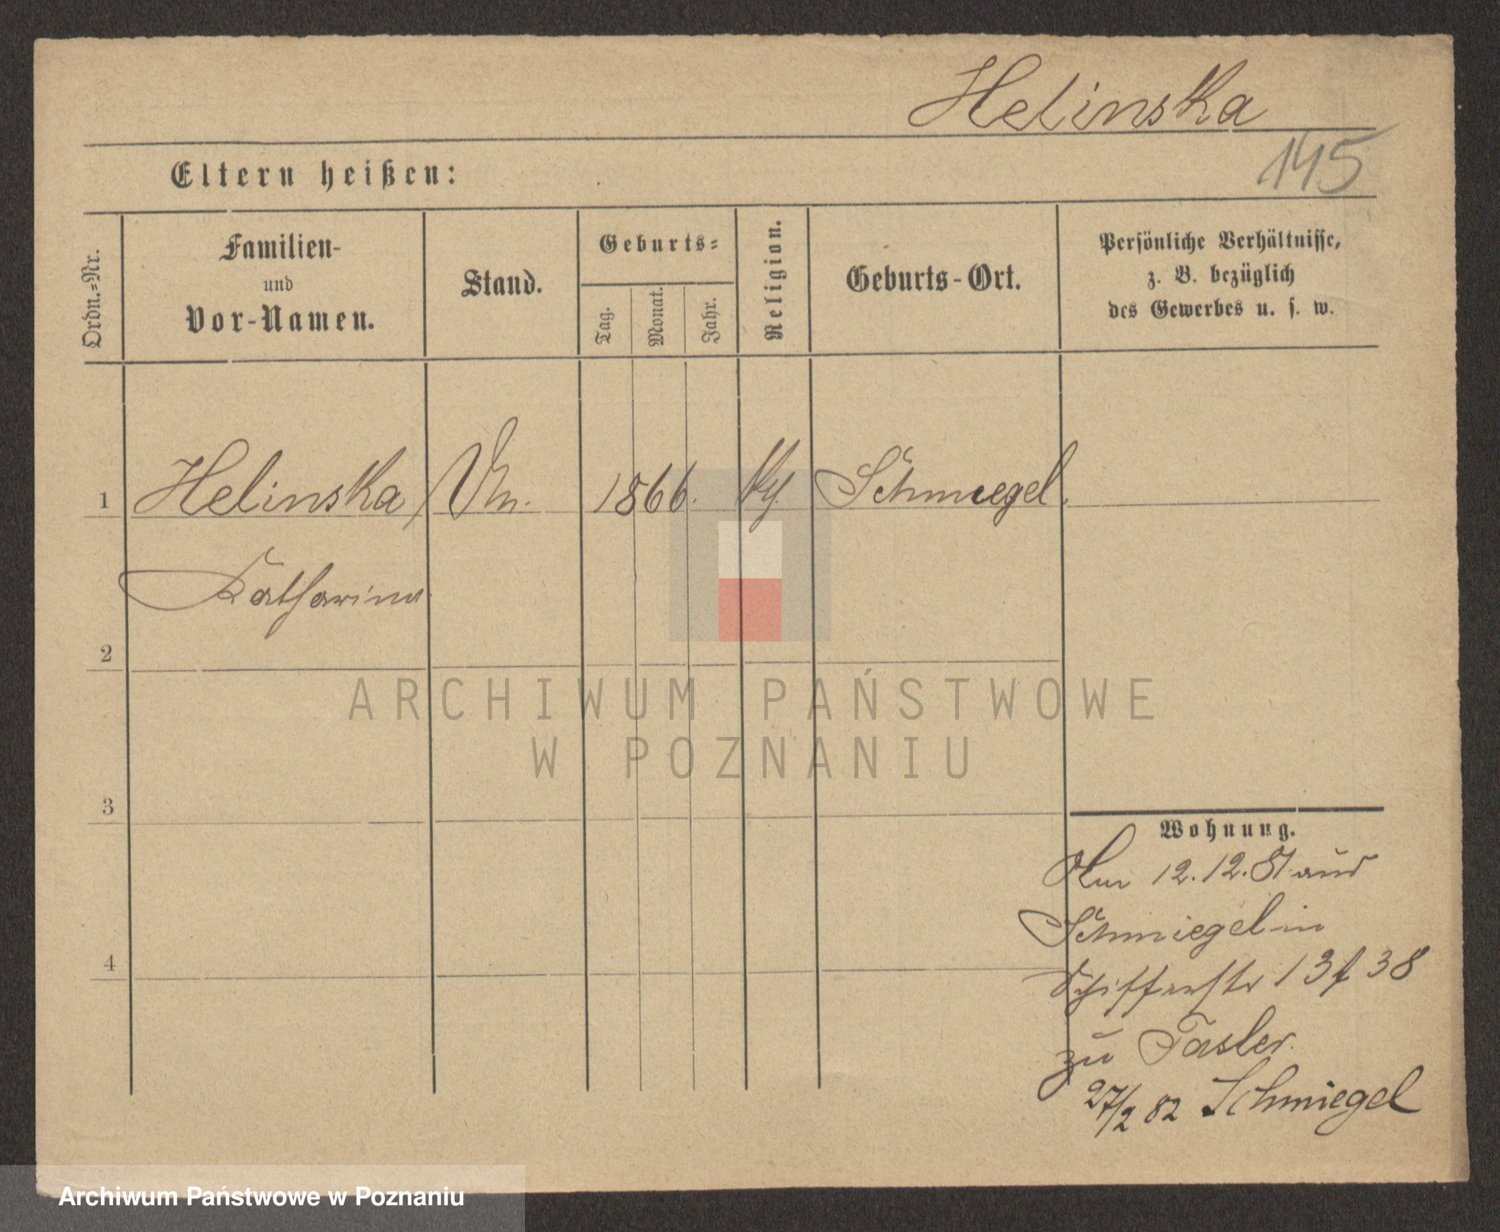 Helinska
145
Eltern heißen:
Ordn.-Nr.
Familien-
und
Vor-Namen.
Stand.
Geburts-
Tag.
Monat.
Jahr.
Religion.
Geburts-Ort.
Persönliche Verhältnisse,
z. B. bezüglich
des Gewerbes u. s. w.
1 Helinska 1866. Schmiegel.
Katharina
2
3
4
Wohnung.
12.12.81 aus
Schmiegel in
Schifferstr 13 38
zu Tasler.
27/2 82 Schmiegel
ARCHIWUM PAŃSTWOWE
W POZNANIU
Archiwum Państwowe w Poznaniu